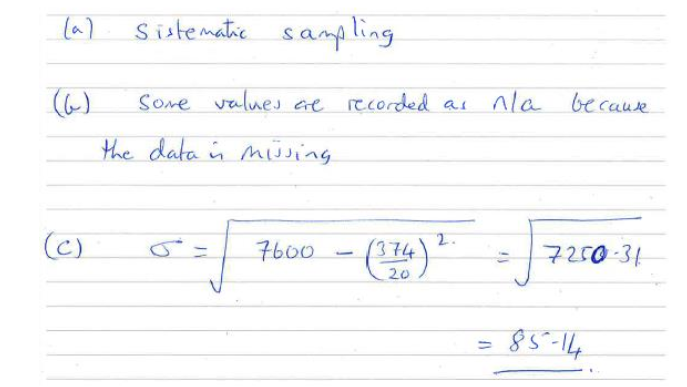 (a) Sistematic sampling
(b) Some values are recorded as n/a because
the data is missing
(c) σ = √(7600 - (374/20)².) = √(7250.31)
= 85.14